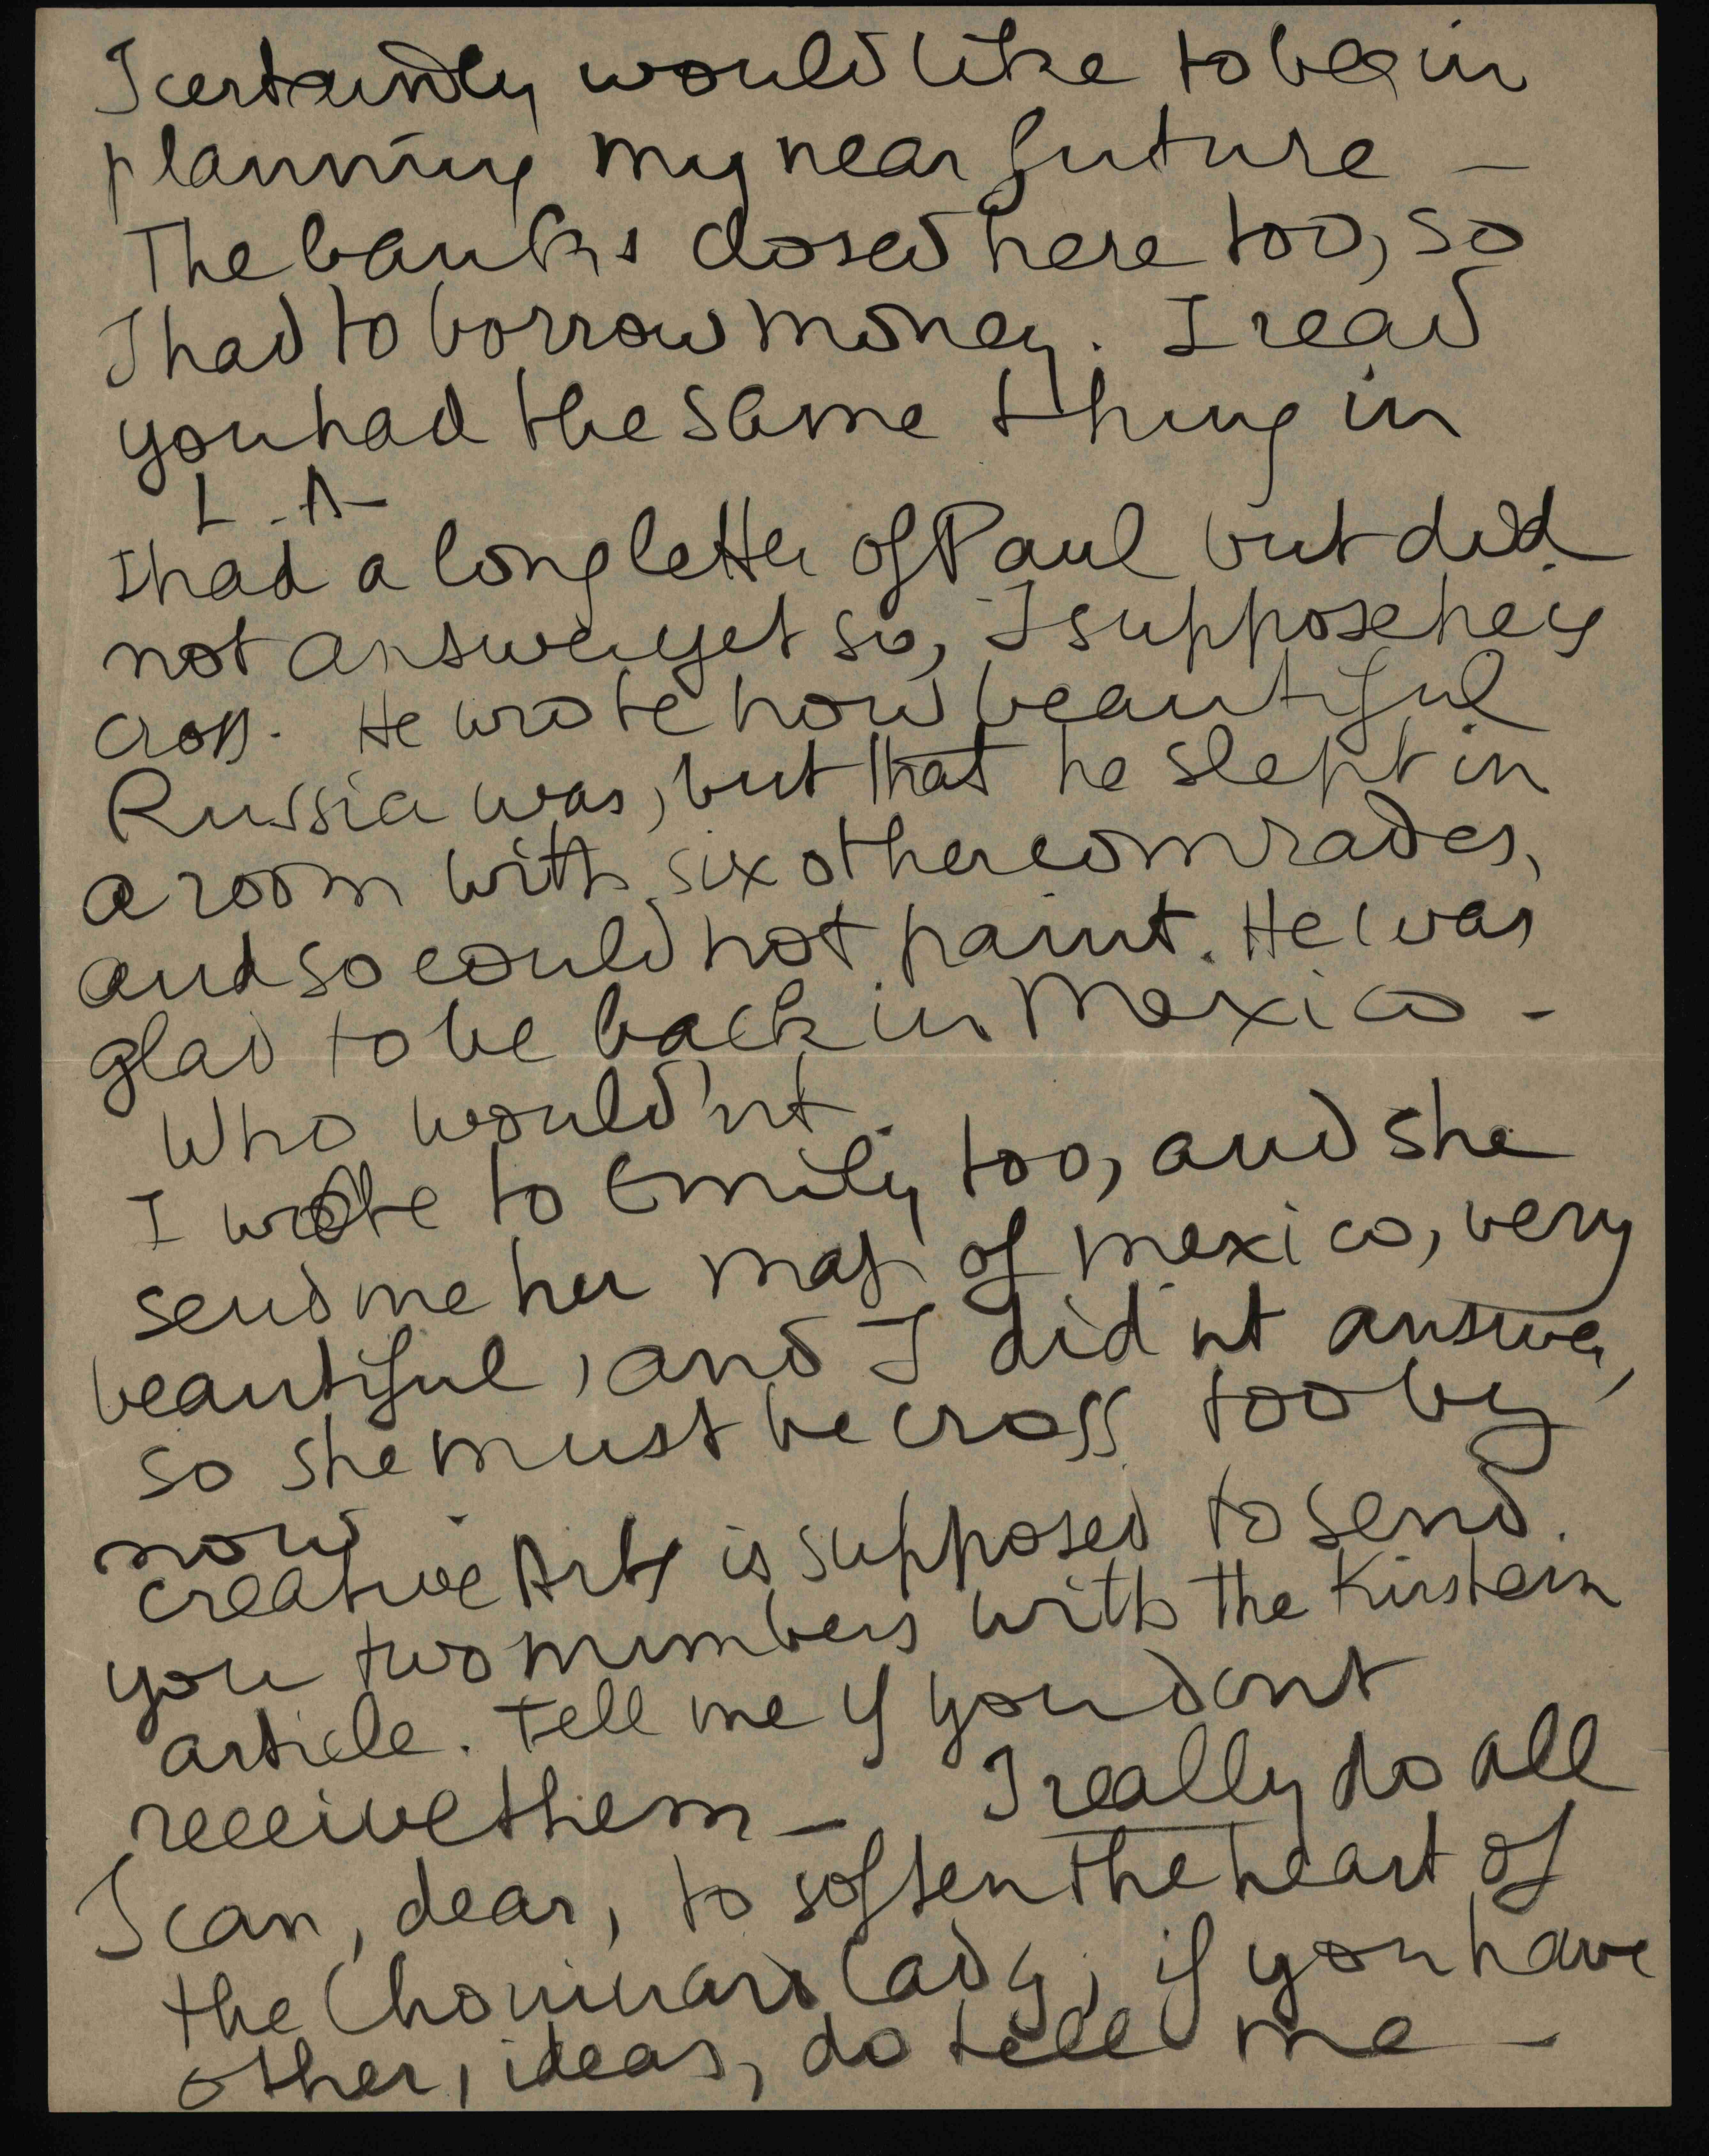 I certaintly would like to begin
planning my near future —
The banks closed here too, so
I had to borrow money. I read
you had the same thing in
L.A—
I had a long letter of Paul but did
not answer yet so, I suppose he is
cross. He wrote how beautiful
Russia was, but that he slept in
a room with six other comrades,
and so could not paint. He was
glad to be back in Mexico -
Who would'nt.
I wrote to Emily too, and she
send me her map of Mexico, very
beautiful, and I did nt answer,
so she must be cross too by
now.
Creative Arts is supposed to send
you two numbers with the Kirstein
article. Tell me if you dont
receive them — I really do all
I can, dear, to soften the heart of
the Chouinard Lady; if you have
other, ideas, do tell me —